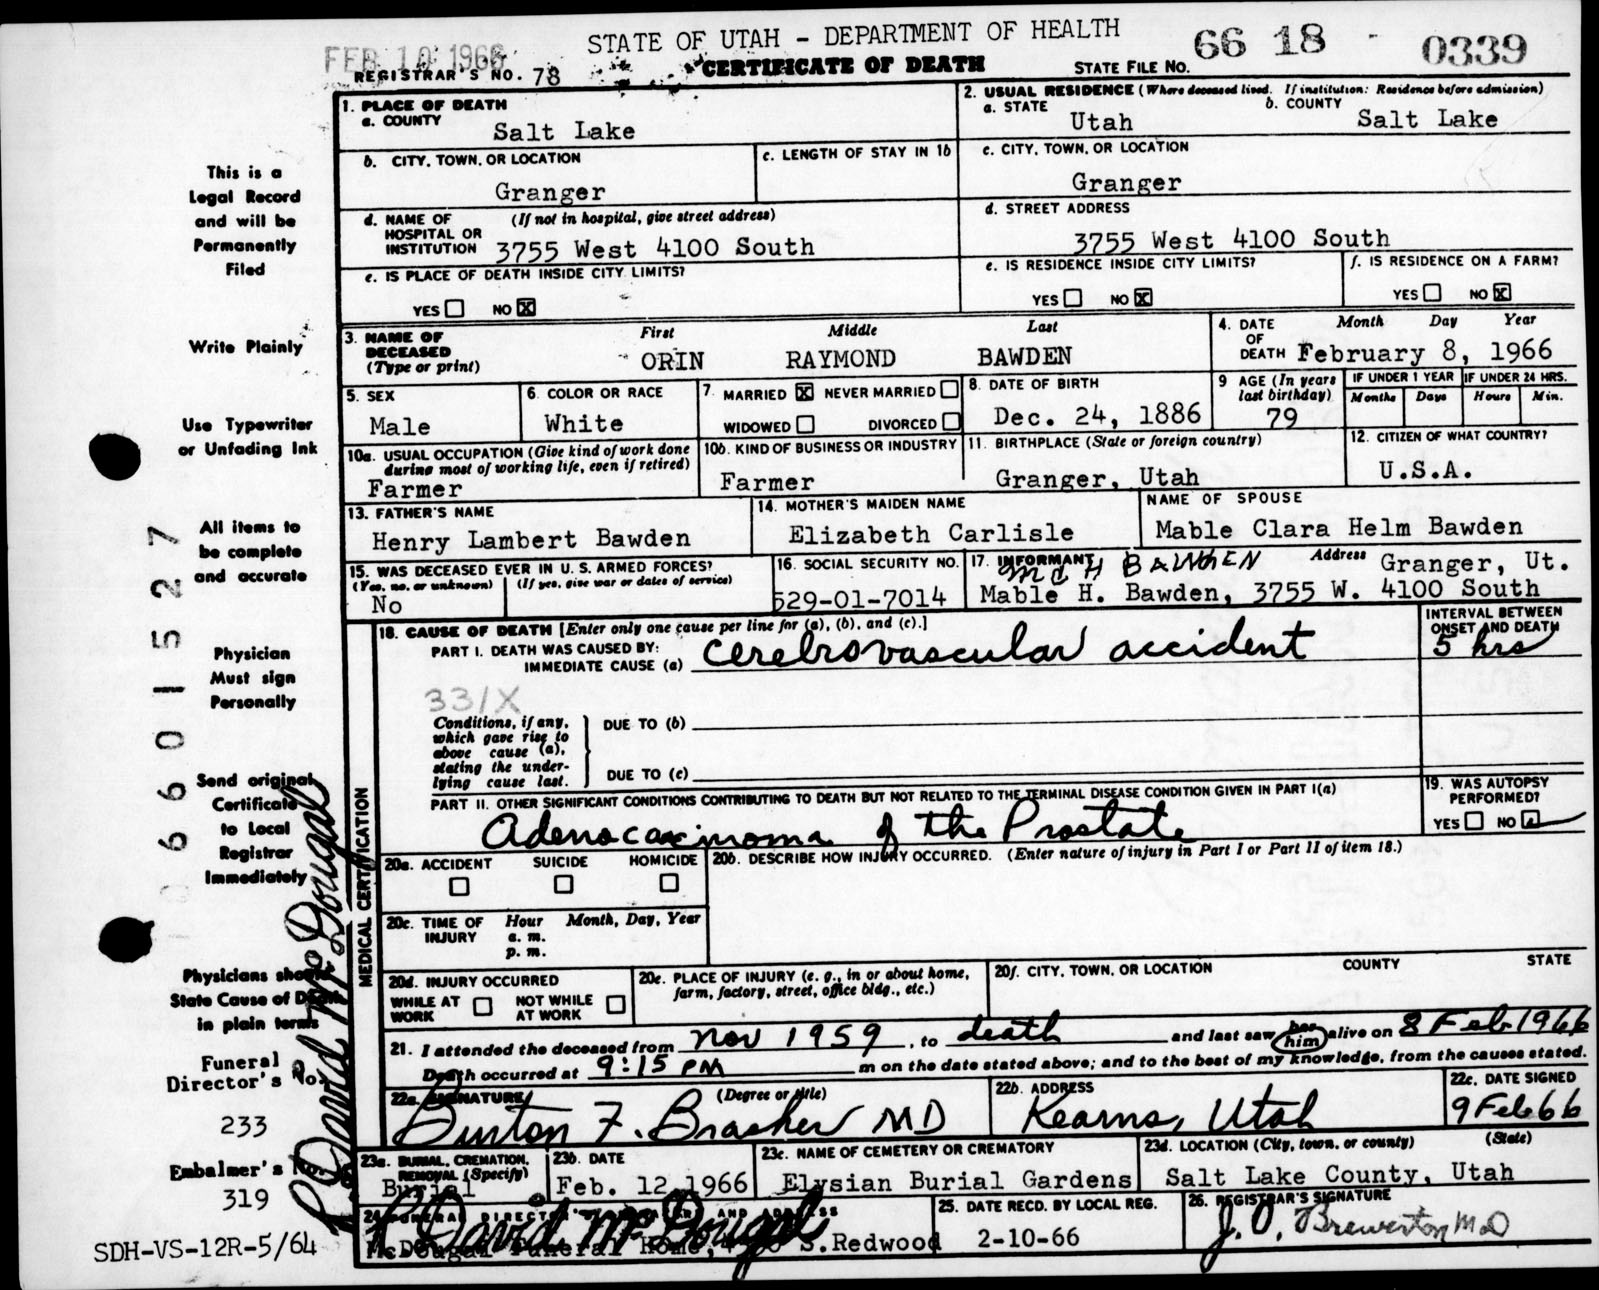 FEB 10 1966
STATE OF UTAH - DEPARTMENT OF HEALTH
66 18 - 0339
REGISTRAR'S NO. 78
CERTIFICATE OF DEATH
STATE FILE NO.
1. PLACE OF DEATH
a. COUNTY
Salt Lake
2. USUAL RESIDENCE (Where deceased lived. If institution: Residence before admission)
a. STATE
Utah
b. COUNTY
Salt Lake
b. CITY, TOWN, OR LOCATION
Granger
c. LENGTH OF STAY IN 1b
c. CITY, TOWN, OR LOCATION
Granger
d. NAME OF HOSPITAL OR INSTITUTION
(If not in hospital, give street address)
3755 West 4100 South
d. STREET ADDRESS
3755 West 4100 South
e. IS PLACE OF DEATH INSIDE CITY LIMITS?
YES NO X
e. IS RESIDENCE INSIDE CITY LIMITS?
YES NO X
f. IS RESIDENCE ON A FARM?
YES NO X
3. NAME OF DECEASED (Type or print)
First Middle Last
ORIN RAYMOND BAWDEN
4. DATE OF DEATH
Month Day Year
February 8, 1966
5. SEX
Male
6. COLOR OR RACE
White
7. MARRIED X NEVER MARRIED
WIDOWED DIVORCED
8. DATE OF BIRTH
Dec. 24, 1886
9 AGE (In years last birthday)
79
IF UNDER 1 YEAR
Months Days
IF UNDER 24 HRS.
Hours Min.
10a. USUAL OCCUPATION (Give kind of work done during most of working life, even if retired)
Farmer
10b. KIND OF BUSINESS OR INDUSTRY
Farmer
11. BIRTHPLACE (State or foreign country)
Granger, Utah
12. CITIZEN OF WHAT COUNTRY?
U.S.A.
13. FATHER'S NAME
Henry Lambert Bawden
14. MOTHER'S MAIDEN NAME
Elizabeth Carlisle
NAME OF SPOUSE
Mable Clara Helm Bawden
15. WAS DECEASED EVER IN U. S. ARMED FORCES?
(Yes, no, or unknown) (If yes, give war or dates of service)
No
16. SOCIAL SECURITY NO.
529-01-7014
17. INFORMANT
H BAWDEN
Address
Granger, Ut.
Mable H. Bawden, 3755 W. 4100 South
18. CAUSE OF DEATH [Enter only one cause per line for (a), (b), and (c).]
PART I. DEATH WAS CAUSED BY:
IMMEDIATE CAUSE (a)
Cerebrovascular accident
INTERVAL BETWEEN ONSET AND DEATH
5 hrs
331X
Conditions, if any, which gave rise to above cause (a), stating the underlying cause last.
DUE TO (b)
DUE TO (c)
PART II. OTHER SIGNIFICANT CONDITIONS CONTRIBUTING TO DEATH BUT NOT RELATED TO THE TERMINAL DISEASE CONDITION GIVEN IN PART I(a)
Adenocarcinoma of the Prostate
19. WAS AUTOPSY PERFORMED?
YES NO
20a. ACCIDENT SUICIDE HOMICIDE
20b. DESCRIBE HOW INJURY OCCURRED. (Enter nature of injury in Part I or Part II of item 18.)
20c. TIME OF INJURY
Hour Month, Day, Year
a. m.
p. m.
20d. INJURY OCCURRED
WHILE AT WORK
NOT WHILE AT WORK
20e. PLACE OF INJURY (e. g., in or about home, farm, factory, street, office bldg., etc.)
20f. CITY, TOWN, OR LOCATION COUNTY STATE
21. I attended the deceased from Nov 1959, to death and last saw her him alive on 8 Feb 1966
Death occurred at 9:15 PM m on the date stated above; and to the best of my knowledge, from the causes stated.
22a. SIGNATURE (Degree or title)
Burton F. Brasher MD
22b. ADDRESS
Kearns, Utah
22c. DATE SIGNED
9 Feb 66
23a. BURIAL, CREMATION, REMOVAL (Specify)
Burial
23b. DATE
Feb. 12, 1966
23c. NAME OF CEMETERY OR CREMATORY
Elysian Burial Gardens
23d. LOCATION (City, town, or county) (State)
Salt Lake County, Utah
24. FUNERAL DIRECTOR'S AND ADDRESS
R David McDougal
McDougal Funeral Home, S. Redwood
25. DATE RECD. BY LOCAL REG.
2-10-66
26. REGISTRAR'S SIGNATURE
J. O. Brewerton MD
MEDICAL CERTIFICATION
This is a
Legal Record
and will be
Permanently
Filed
Write Plainly
Use Typewriter
or Unfading Ink
All items to
be complete
and accurate
Physician
Must sign
Personally
Send original
Certificate
to Local
Registrar
Immediately
Physicians should
State Cause of Death
in plain terms
Funeral
Director's No.
233
Embalmer's No.
319
SDH-VS-12R-5/64
R David McDougal
06601527